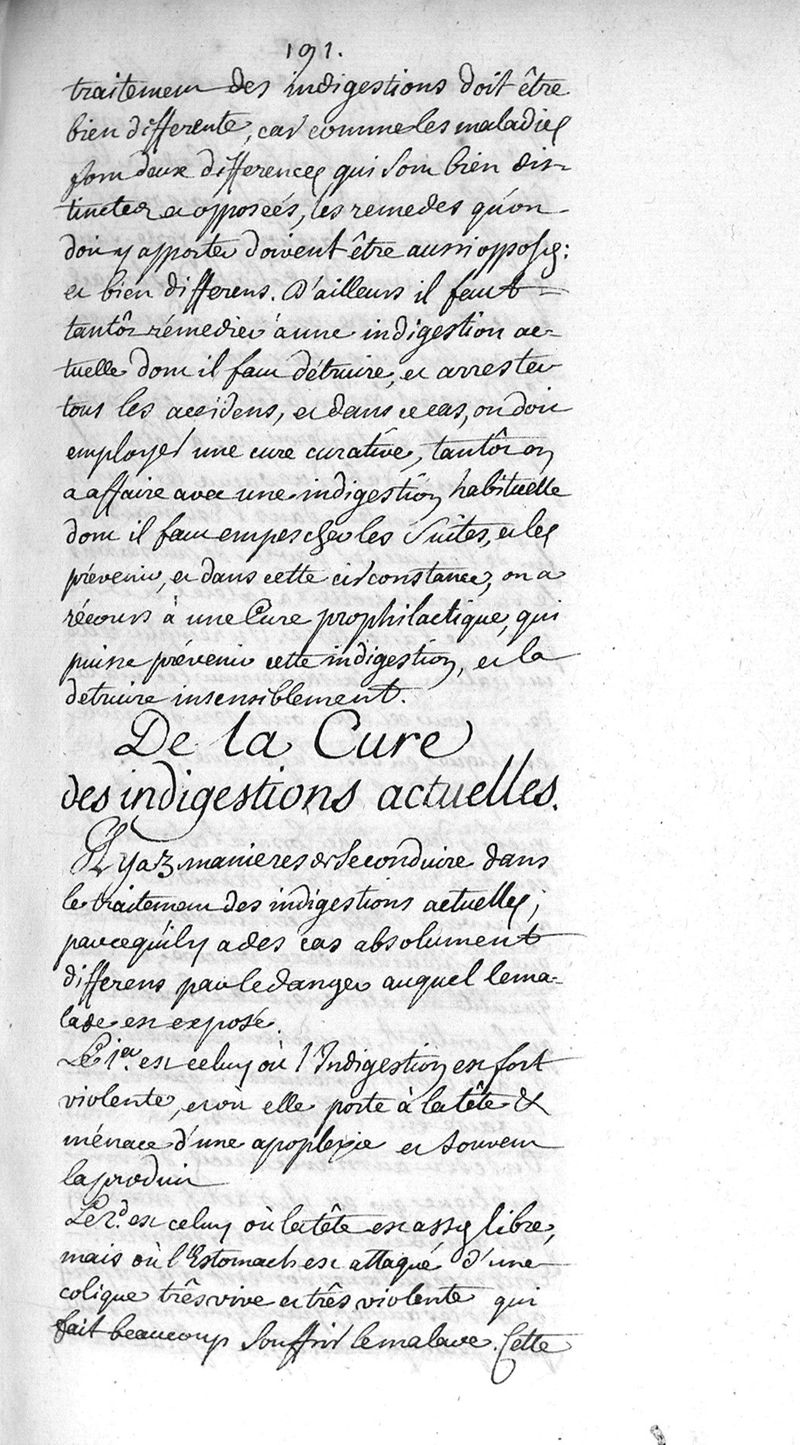 191.
traitement des indigestions doit être
bien differente, car comme les maladies
sont deux differences qui sont bien dis-
tinctes et opposeés, les remedes qu'on
doit y apporter doivent être aussi opposés
et bien differens. D'ailleurs il faut
tantôt rémedier à une indigestion ac-
tuelle dont il faut détruire, et arrester
tous les accidens, et dans ce cas, on doit
employer une cure curative, tantôt on
a affaire avec une indigestion habituelle
dont il faut empescher les suites, et les
prévenir, et dans cette circonstance, on a
récours à une Cure prophilactique, qui
puisse prévenir cette indigestion, et la
detruire insensiblement.
De la Cure
des indigestions actuelles.
Il y a 2 manieres de se conduire dans
le traitement des indigestions actuelles;
parcequ'il y a des cas absolument
differens par le danger auquel le ma-
lade est exposé.
Le 1er. est celuy où l'Indigestion est fort
violente, et où elle porte à la tête &
ménace d'une apoplexie et souvent
la produit
Le 2d. est celuy où la tête est assés libre,
mais où l'Estomach est attaqué d'une
colique três vive et três violente qui
fait beaucoup souffrir le malade. Cette